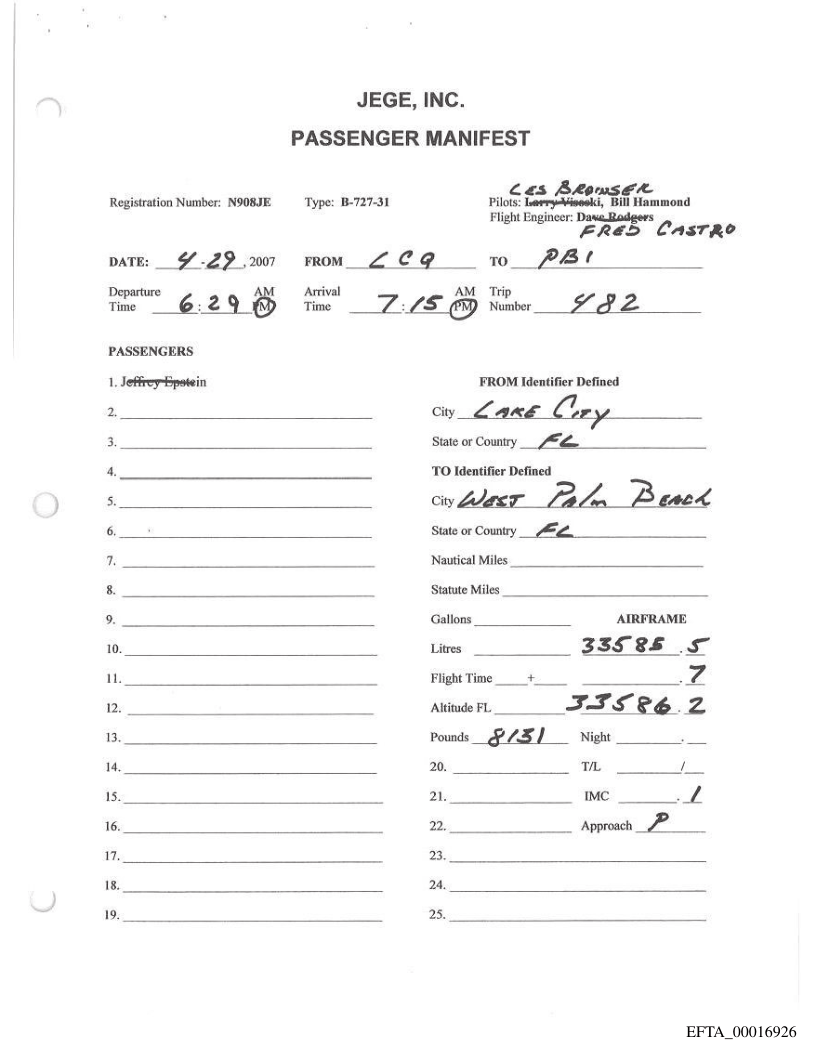 JEGE, INC.
PASSENGER MANIFEST
LES BROINSER
Registration Number: N908JE Type: B-727-31 Pilots: Larry Visoski, Bill Hammond
Flight Engineer: Dave Rodgers
FRED CASTRO
DATE: 4-29, 2007 FROM LCQ TO PBI
Departure Time 6:29 AM PM Arrival Time 7:15 AM PM Trip Number 482
PASSENGERS
1. Jeffrey Epstein FROM Identifier Defined
2. City LAKE CITY
3. State or Country FL
4. TO Identifier Defined
5. City WEST PALM BEACH
6. State or Country FL
7. Nautical Miles
8. Statute Miles
9. Gallons AIRFRAME
10. Litres 33585.5
11. Flight Time + .7
12. Altitude FL 33586.2
13. Pounds 8131 Night .
14. 20. T/L /
15. 21. IMC .1
16. 22. Approach P
17. 23.
18. 24.
19. 25.
EFTA_00016926